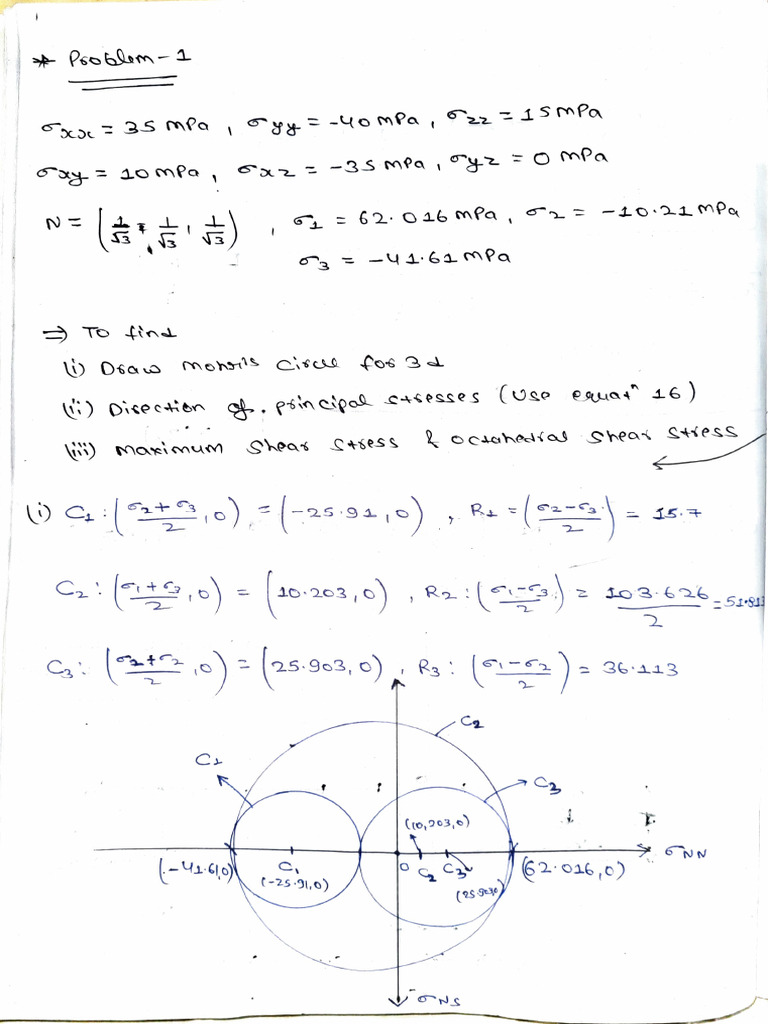 * Problem-1
σxx = 35 MPa, σyy = -40 MPa, σzz = 15 MPa
σxy = 10 MPa, σxz = -35 MPa, σyz = 0 MPa
N = (1/√3, 1/√3, 1/√3), σ1 = 62.016 MPa, σ2 = -10.21 MPa
σ3 = -41.61 MPa
⇒ To find
(i) Draw Mohr's Circle for 3d
(ii) Direction of principal stresses (Use equatⁿ 16)
(iii) Maximum Shear Stress & Octahedral Shear Stress
(i) C1: ((σ2+σ3)/2, 0) = (-25.91, 0), R1 = ((σ2-σ3)/2) = 15.7
C2: ((σ1+σ3)/2, 0) = (10.203, 0), R2: ((σ1-σ3)/2) = 103.626/2 = 51.813
C3: ((σ2+σ2)/2, 0) = (25.903, 0), R3: ((σ1-σ2)/2) = 36.113
C2
C1
C3
(10,203,0)
(-41.61,0)
C1
(-25.91,0)
O
C2
C3
(25.903,0)
(62.016,0)
σNN
σNS